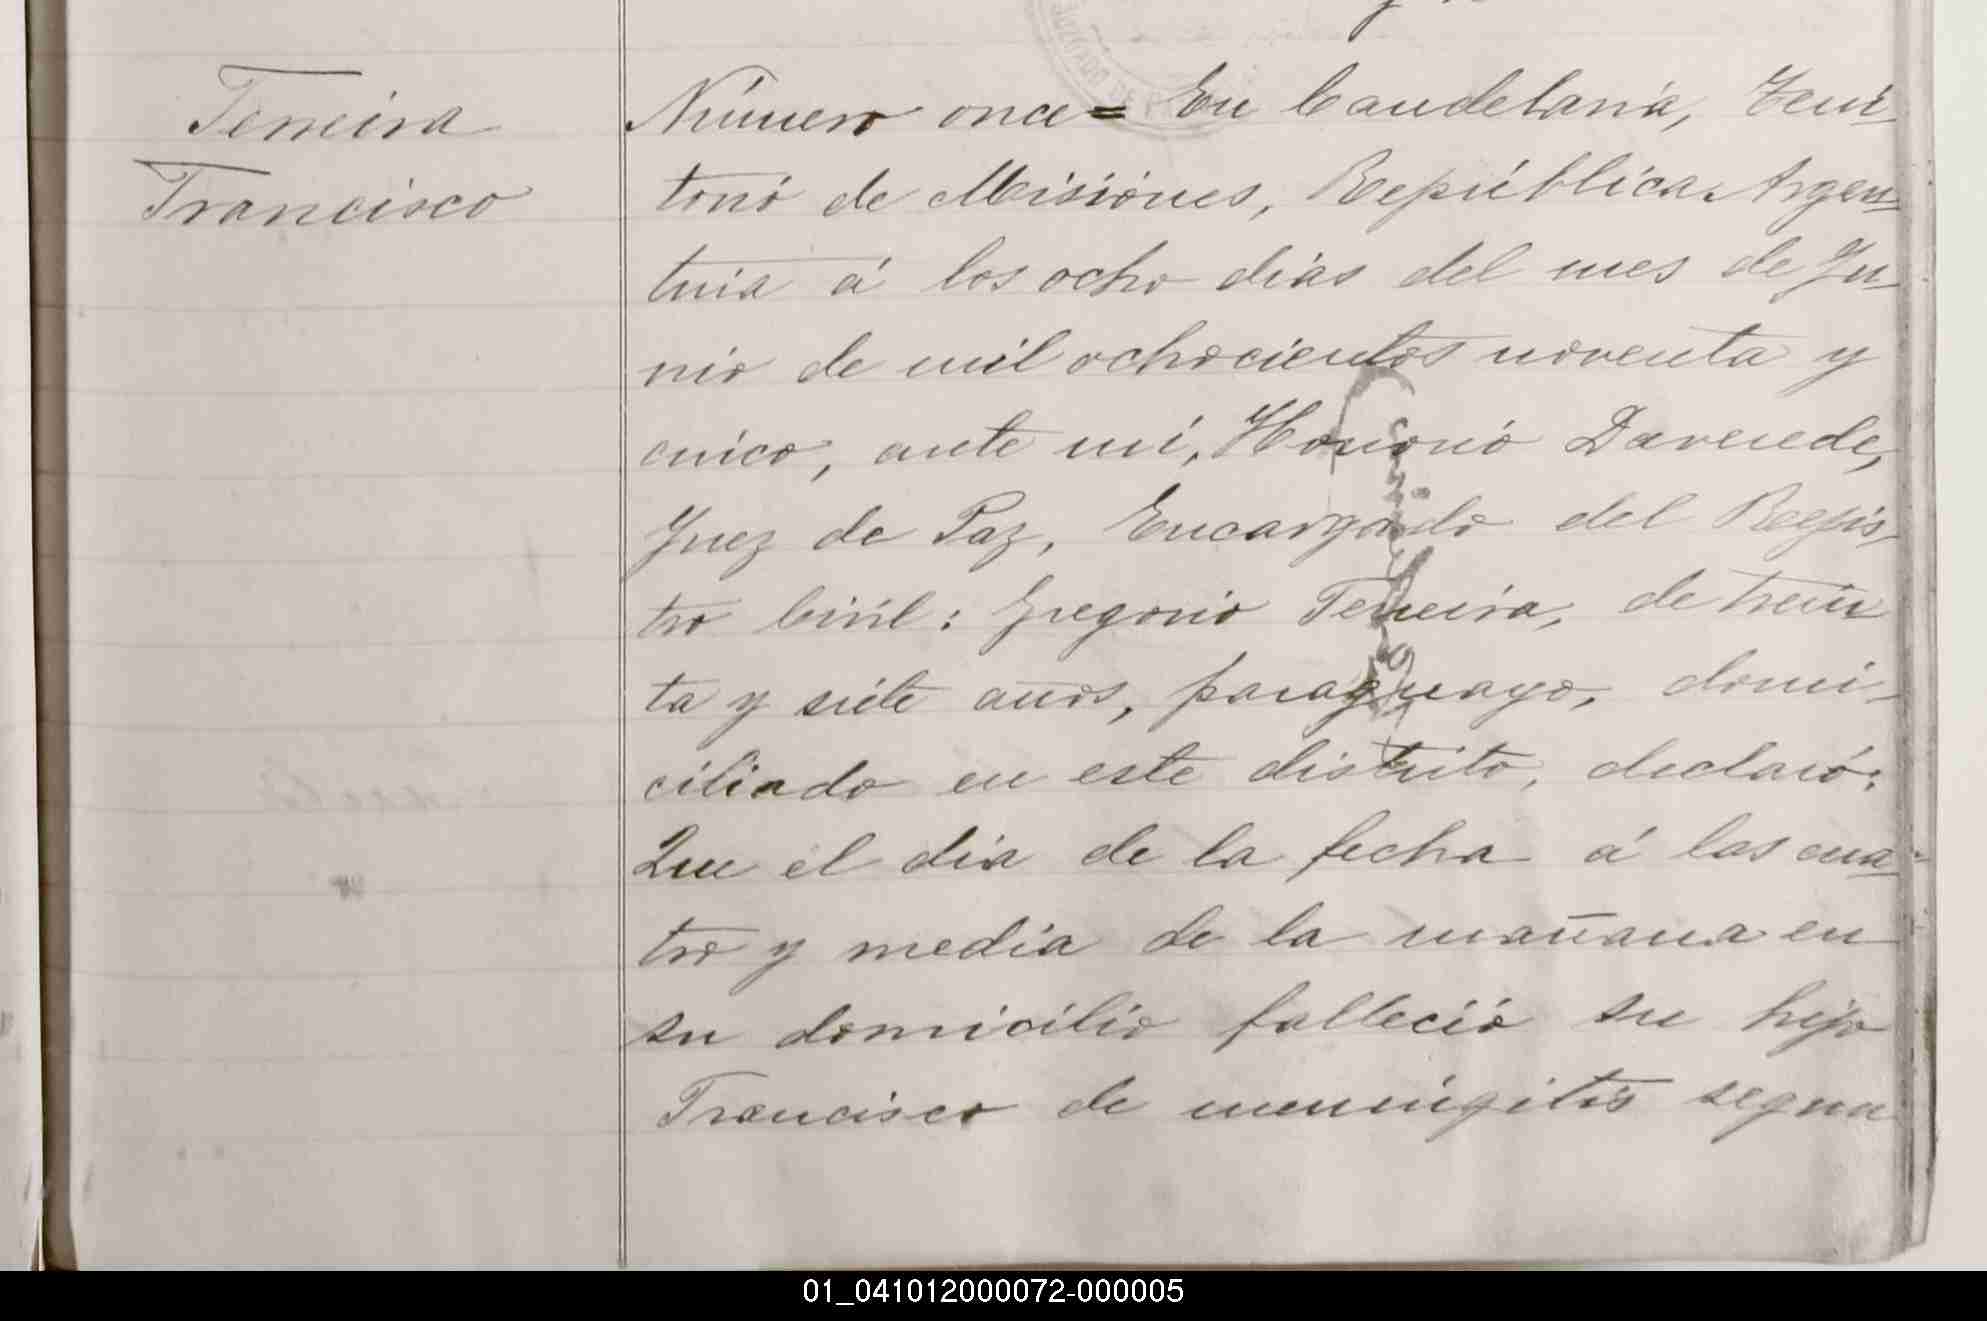 Ferreira
Francisco
Número once = En Candelaria, Terri
torio de Misiones, República Argen
tina á los ocho dias del mes de Ju
nio de mil ochocientos noventa y
cinco, ante mi, Honorio Daverede,
Juez de Paz, Encargado del Regis
tro Civil: Gregorio Ferreira, de trein
ta y siete años, paraguayo, domi-
ciliado en este distrito, declaró:
Que el dia de la fecha á las cua
tro y media de la mañana en
su domicilio falleció su hijo
Francisco de meningitis segun
01_041012000072-000005